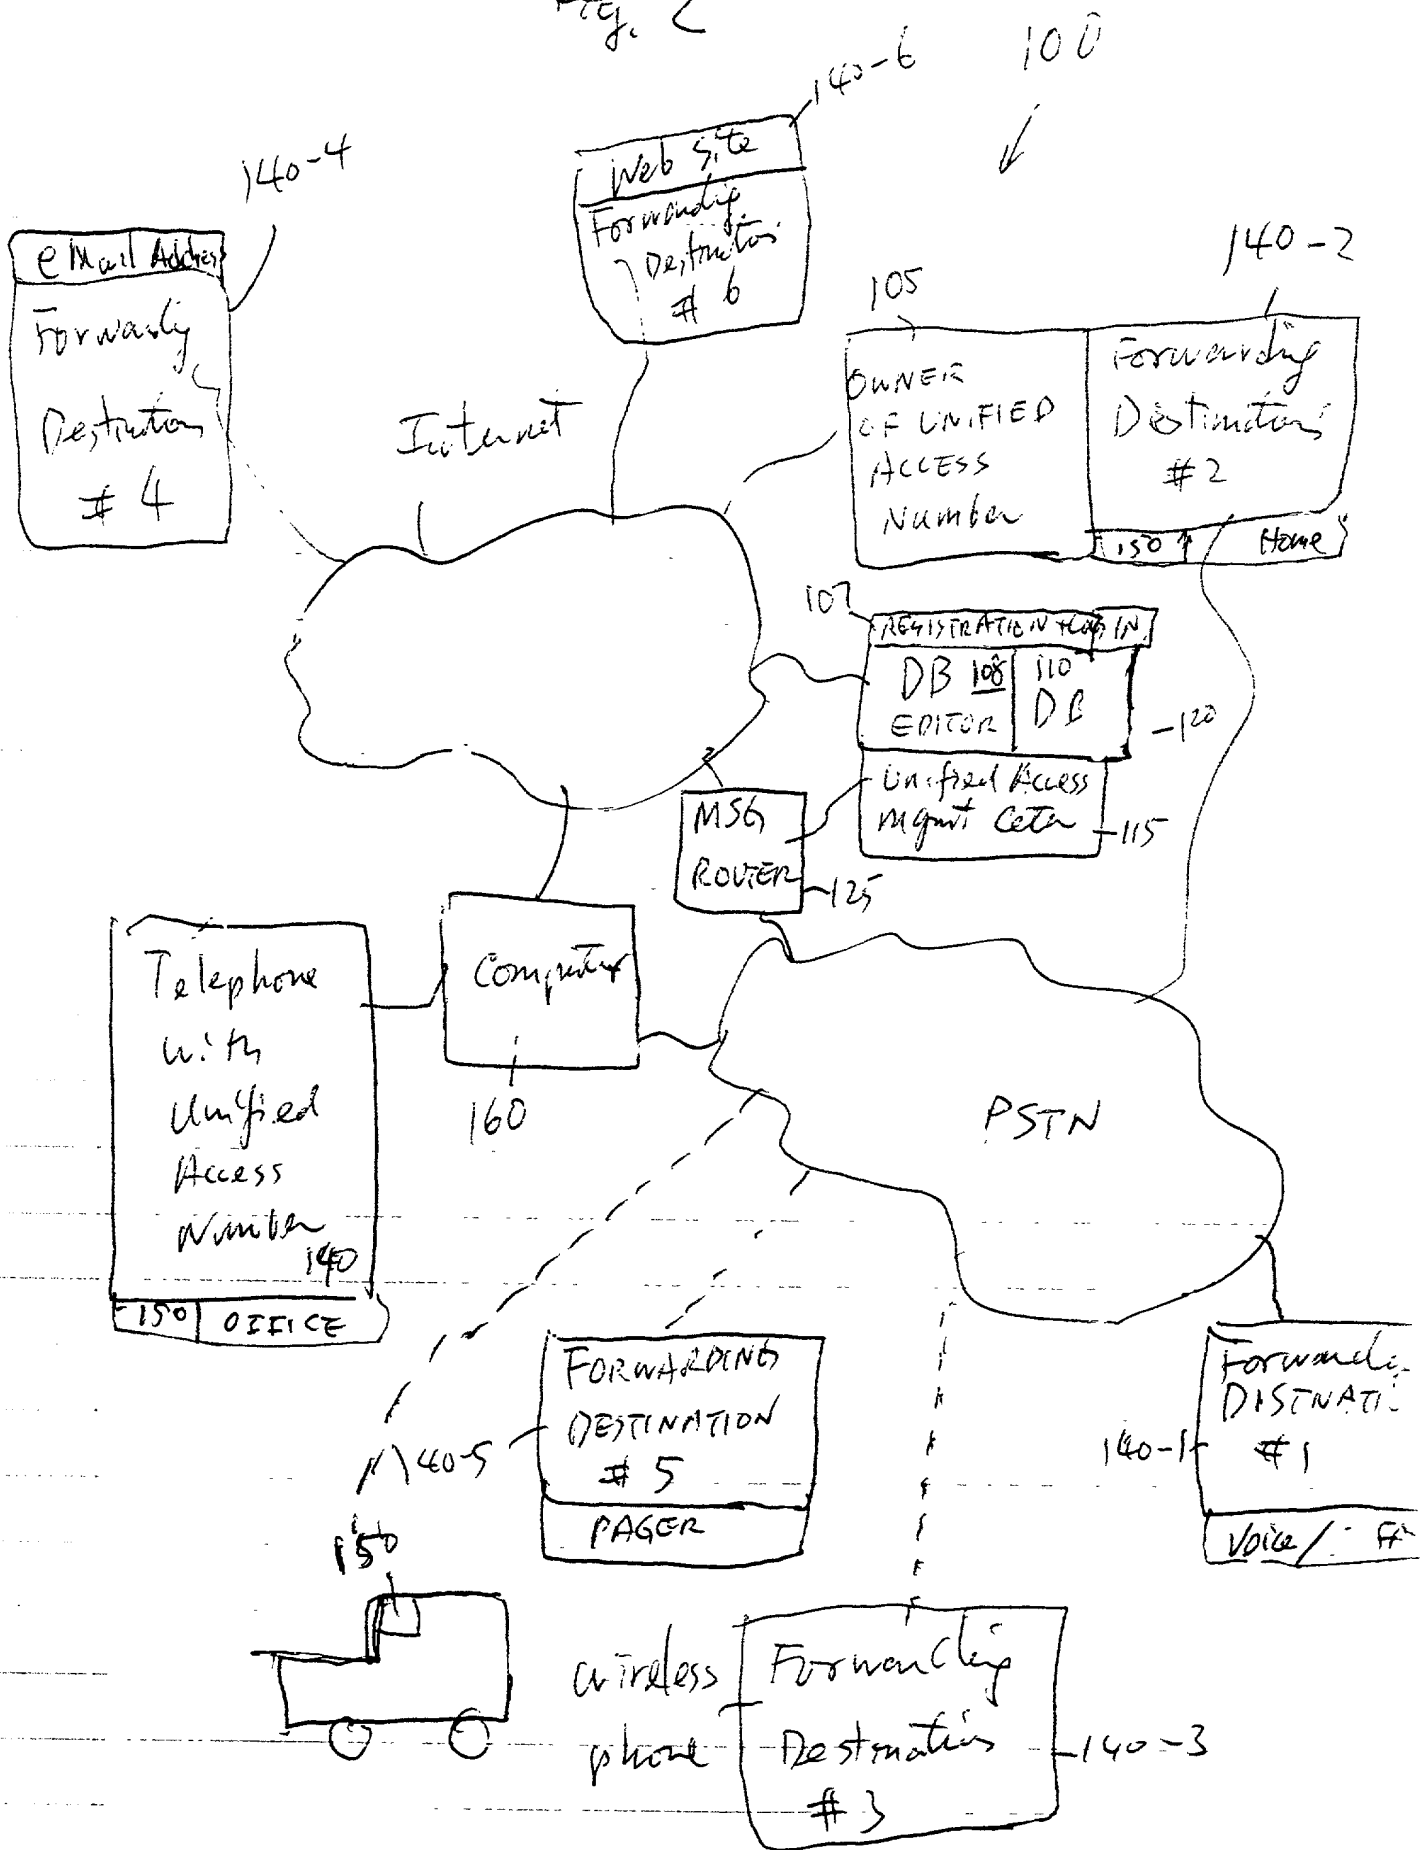 Fig. 2
100
140-6
Web Site
Forwarding
Destination
# 6
140-4
eMail Address
Forwarding
Destination
# 4
Internet
105
OWNER
OF UNIFIED
ACCESS
Number
140-2
Forwarding
Destination
#2
150
Home
107
REGISTRATION + LOG IN
DB 108
EDITOR
110
DB
120
Unified Access
Mgmt
115
MSG
ROUTER
125
Telephone
with
Unified
Access
Number
140
150
OFFICE
Computer
160
PSTN
FORWARDING
DESTINATION
# 5
PAGER
140-5
140-1
#1
Voice/
150
wireless
phone
Forwarding
Destination
#3
140-3